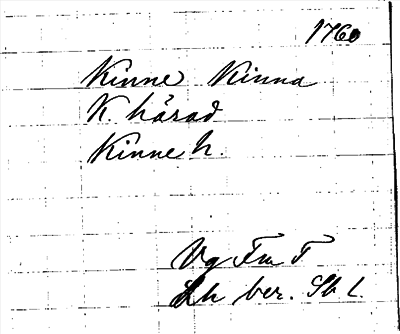 1760
Kinne Kinna
K härad
Kinne h
Vg Fm T
Lh ber. Sb l.